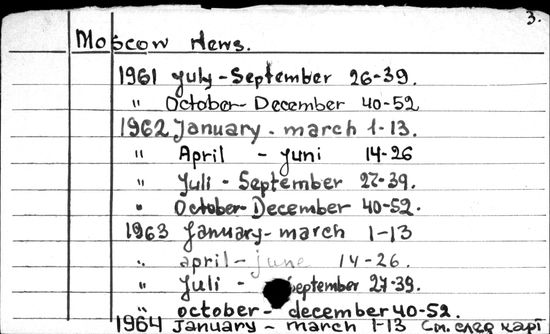 3.
Moscow News.
1961 July - September 26-39.
" October - December 40-52.
1962 January - march 1-13.
" April - Juni 14-26
" Juli - September 27-39.
" October - December 40-52.
1963 January - march 1-13
" april - june 14-26.
" Juli - September 27-39.
" october - december 40-52.
1964 January - march 1-13 См. след карт